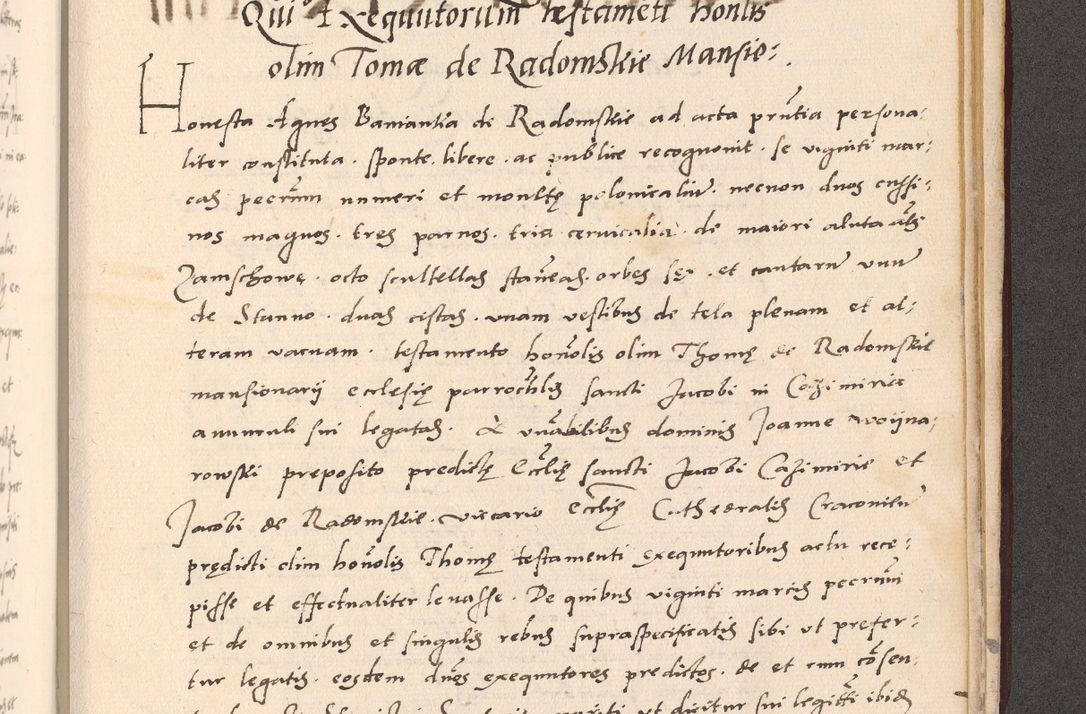 Qui Exequutorum testameti honlis
olim Tomæ de Radomskie Mansio:
Honesta Agnes Baniantia de Radomskie ad acta prñtia persona:
liter constituta. sponte. libere. ac publice recognovit. se viginti mar:
cas pecrum numeri et monetę polonicaliũ. necnon duos cussi:
nos magnos. tres parvos. tria cervicalia. de maiori aluta als
Zamschowe. octo scultellas stañeas. orbes sex. et cantarũ unũ
de Stanno. duas cistas. unam vestibus de tela plenam et al:
teram vacuam. testamento honolis olim Thomę de Radomskie
mansionarij ecclesię parrochlis sancti Jacobi in Cazimiria
avunculi sui legatas. A vnabilibus dominis Joanne Woijna:
rowski preposito predictę Ecclię sancti Jacobi Cazimirie et
Jacobi de Radomskie. vicario ecclię Cathedralis Cracovieñ
prędicti olim honolis Thomę testamenti exequutoribus actu rece:
pisse et effectualiter levasse. De quibus viginti marcis pecrum
et de omnibus et singulis rebus supraspecificatis sibi ut prefer:
tur legatis. eosdem dños exequutores predictos. de et cum cõsen:
mariti ut dicitur sui legitti ibid